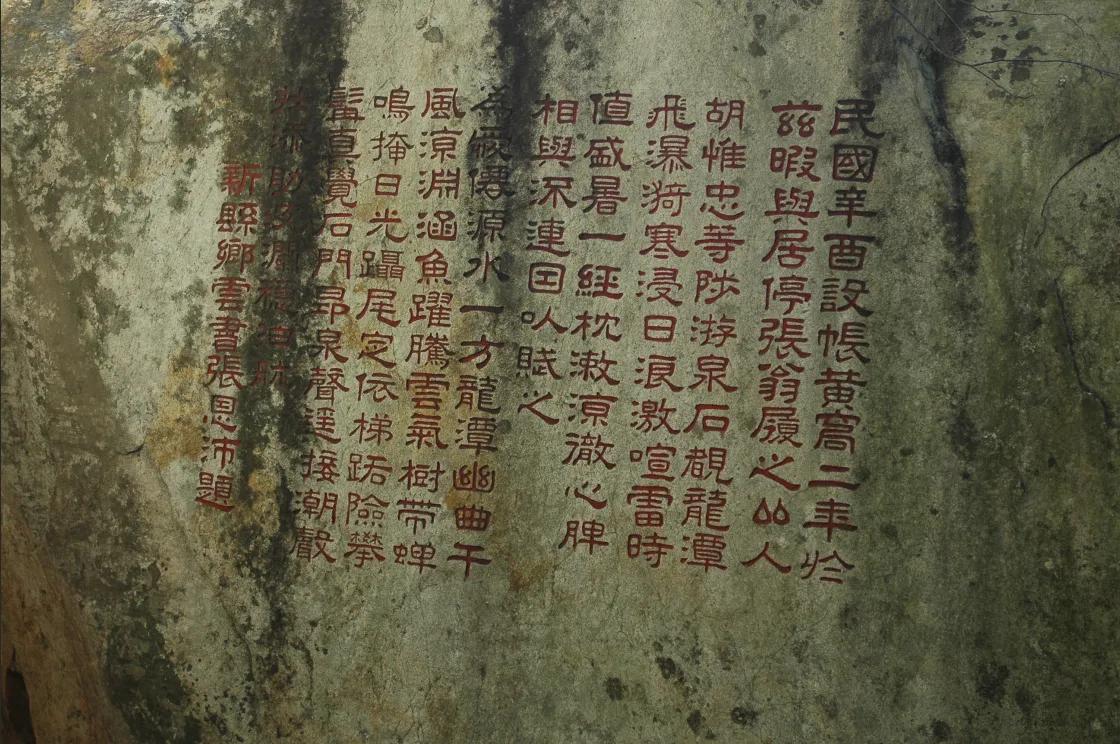 民國辛酉設帳黃窩二年於
茲暇與居停張翁履之山人
胡惟忠等陟游泉石覩龍潭
飛瀑漪寒浸日浪激喧雷時
值盛暑一經枕漱涼徹心脾
相與深連因以賦之
為爱僊源水一方龍潭幽曲千
風涼淵涵魚躍騰雲氣樹帶蟬
鳴掩日光躡尾定依梯跖險攀
髯直覺石門昂泉聲逕接潮
添助
新縣鄉雲書張恩沛題